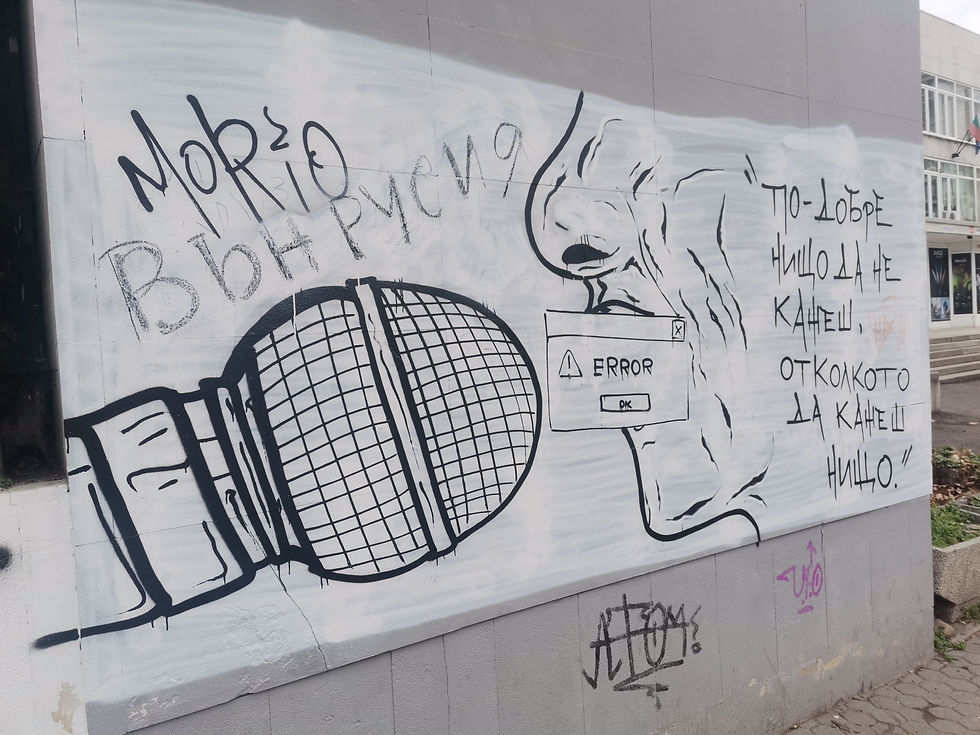 Вън Русия
ПО-ДОБРЕ
НИЩО ДА НЕ
КАЖЕШ,
ОТКОЛКОТО
ДА КАЖЕШ
НИЩО."
X
ERROR
OK